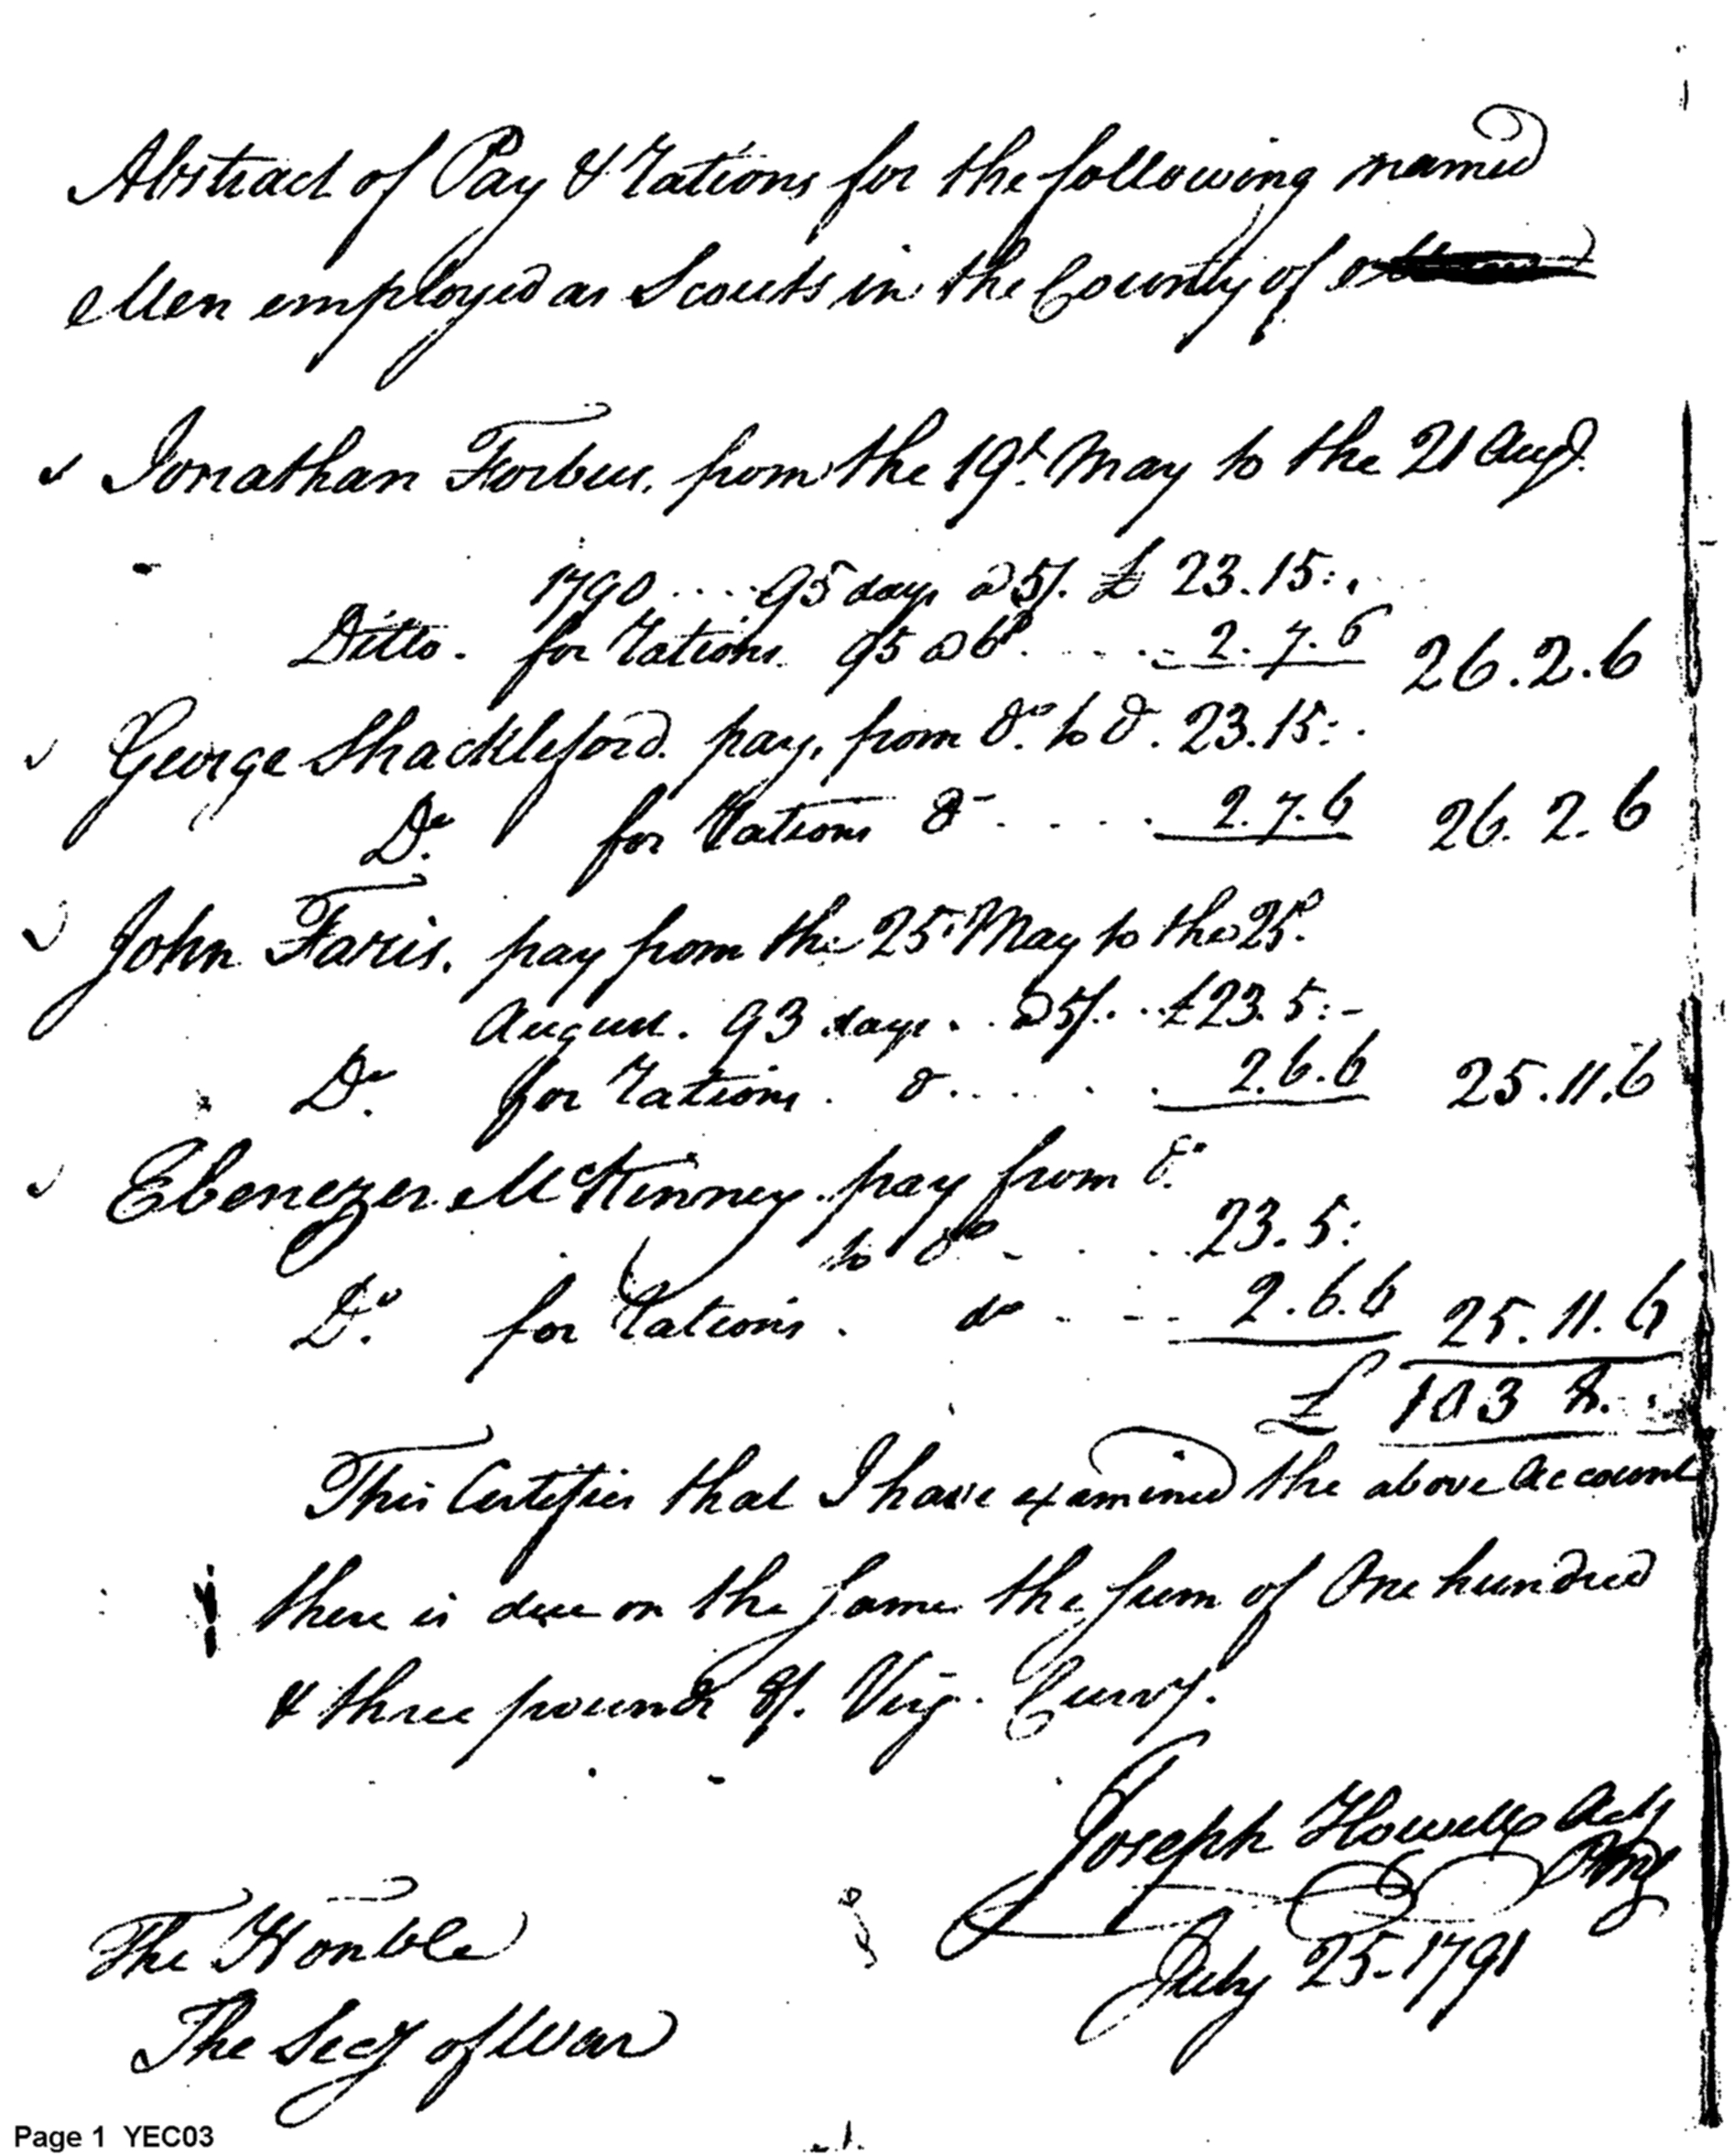 Abstract of Pay & rations for the following named
Men employed as Scouts in the County of
Jonathan Forbus, from the 19t. May to the 21 Augt.
1790 .... 95 days @ 5/. £ 23.15:.
Ditto. for rations. 95 @ 6d. .... 2.7.6 26.2.6
George Shackleford. pay, from do. to do. 23.15:.
Do. for rations do .... 2.7.6 26.2.6
John Faris, pay from the 25 May to the 25.
August. 93 days .. @ 5/. .. £23.5:-
Do. for rations. do .... 2.6.6 25.11.6
Ebenezer McKinney. pay from do.
to do - . . 23.5:
Do. for rations. do - -- 2.6.6 25.11.6
£ 103 8. .
This Certifies that I have examined the above Account
there is due on the same the sum of One hundred
& three pounds 8/. Virg. Curry.
Joseph Howell Actg
Pmg
July 25-1791
The Honble
The Secy of War
Page 1 YEC03